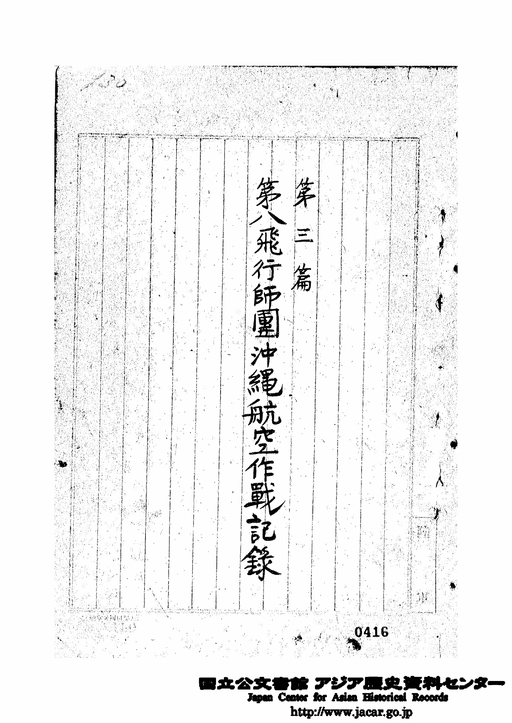 130
第三篇
第八飛行師團沖縄航空作戰記録
0416
国立公文書館 アジア歴史資料センター
Japan Center for Asian Historical Records
http://www.jacar.go.jp